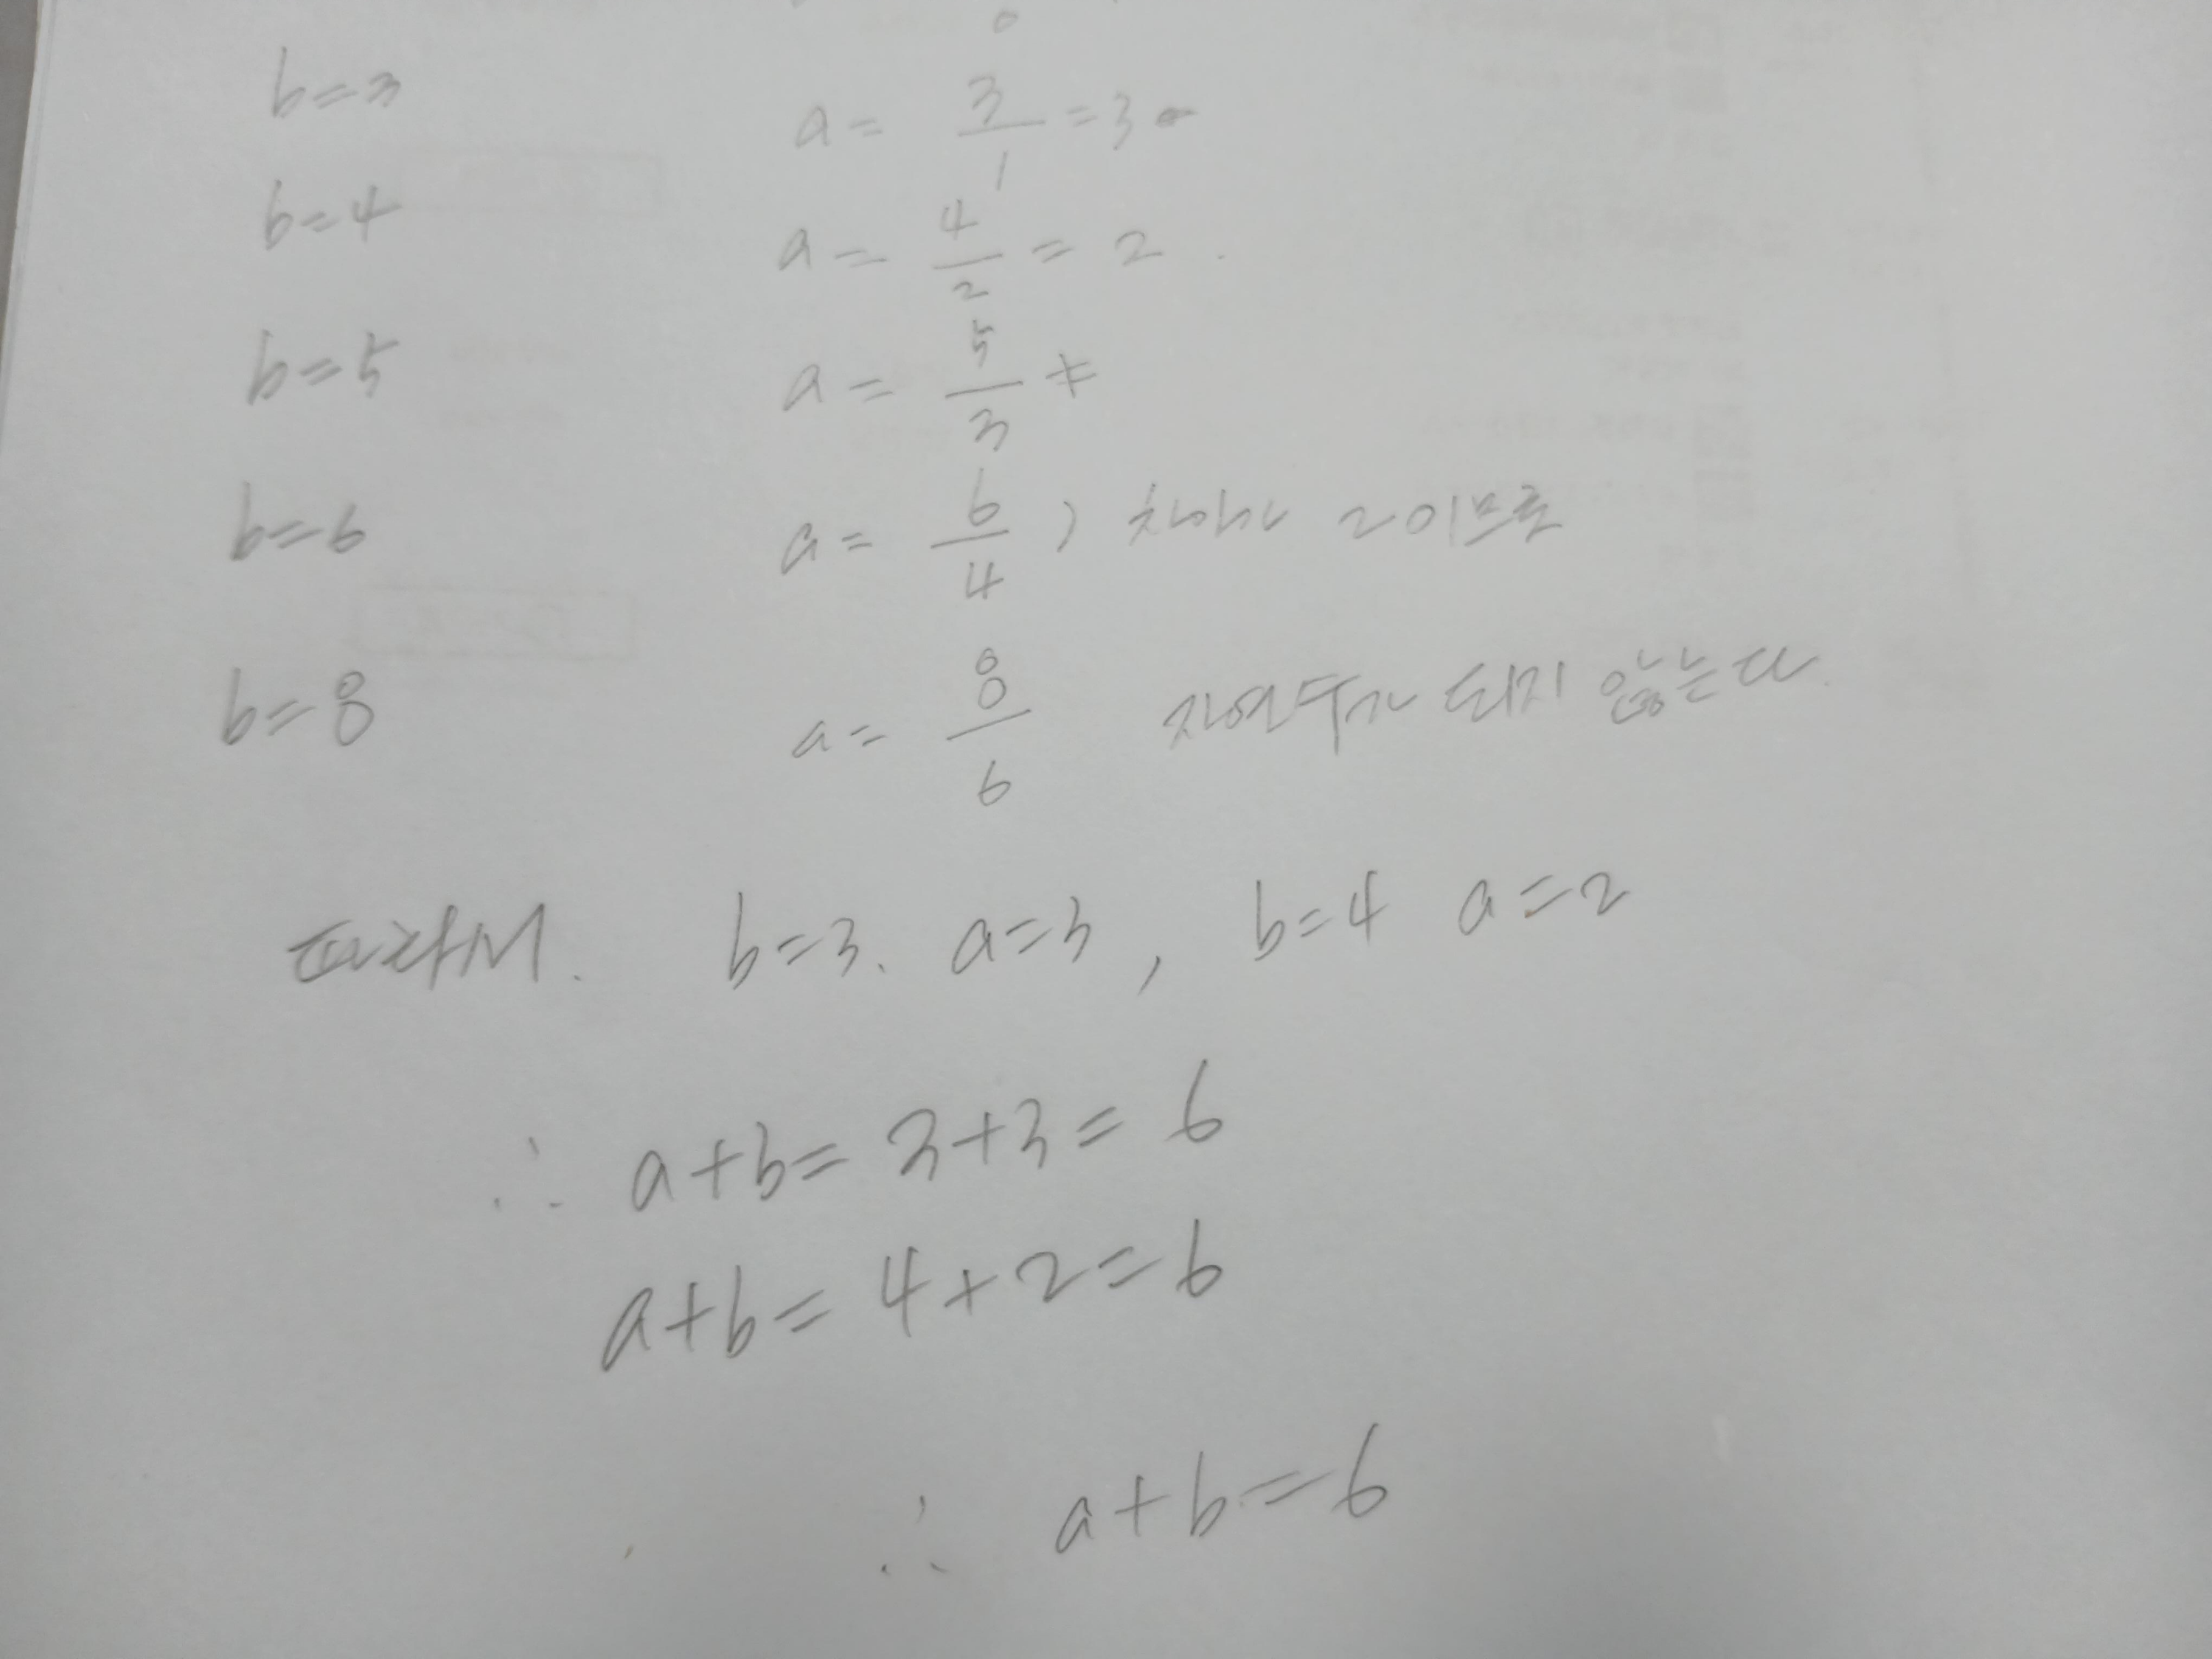 b=3 a= 3/1 =3
b=4 a= 4/2 = 2
b=5 a= 5/3 ≠
b=6 a= 6/4 , 차이가 2이므로
b=8 a= 8/6 자연수가 되지 않는다.
따라서. b=3. a=3, b=4 a=2
∴ a+b= 3+3= 6
a+b= 4+2=6
∴ a+b=6